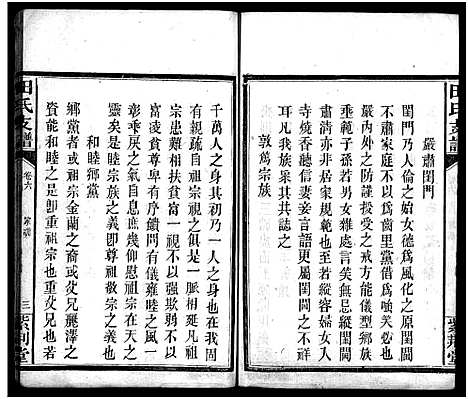 田氏支譜
紫荆堂
嚴肅閨門
閨門乃人倫之始女德為風化之原閨闈
不肅家庭不以為凾里黨皆以為憾必
嚴內外之防謹授受之戒方能儀型鄉族
垂範子孫若男女雜處言笑無忌縱閨闈
肅清亦非居家規範至於縱容婦女入
寺燒香聽信妻妾言語更屬閨閫之不祥
兒我族眾其共誌之
敦篤宗族
千萬人之身其初乃一人之身也我族雖
有親疏自祖宗視之俱是一脈所延凡爾
宗患難相扶貧富一視不以強欺弱不以
富凌貧尊卑有序問饋有儀雍睦之風一
彰乖戾之氣自息庶幾仰慰祖宗在天之
靈矣是睦宗族之義即尊祖敬宗之義也
和睦鄉黨
鄉黨者或祖宗金蘭之裔或父兄麗澤之
資能和睦之是即重祖宗也重父兄也若
田氏支譜
卷六
家譜
三
紫荆堂